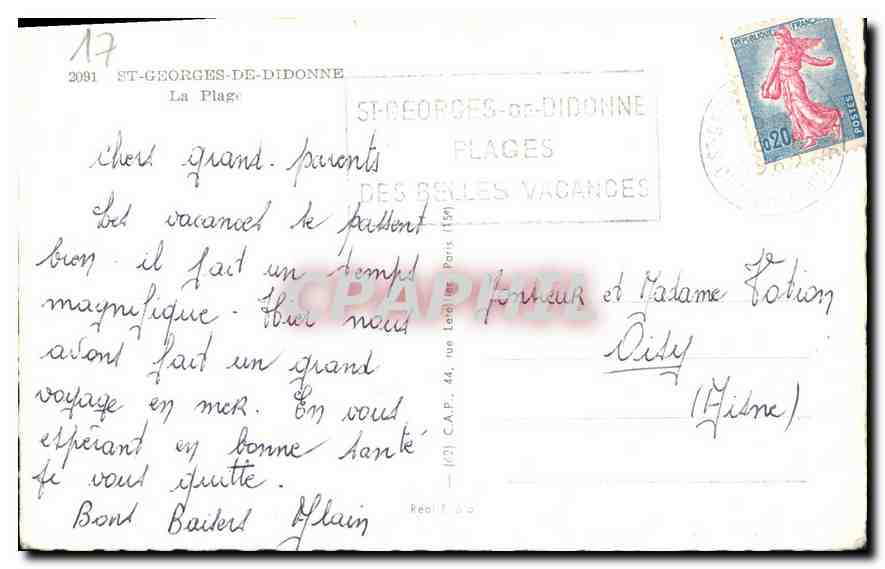 17
2091 ST-GEORGES-DE-DIDONNE
La Plage
REPUBLIQUE FRANÇAISE
0,20
POSTES
ST-GEORGES-DE-DIDONNE
PLAGES
DES BELLES VACANCES
Chers grand-parents
Les vacances se passent
bien. il fait un temps
magnifique. Hier nous
avons fait un grand
voyage en mer. En vous
espérant en bonne santé
je vous quitte.
Bons Baisers Alain
Monsieur et Madame
Oisy
(Aisne)
(62) C.A.P., 44, rue Letellier, Paris (15e)
CPAPHIL